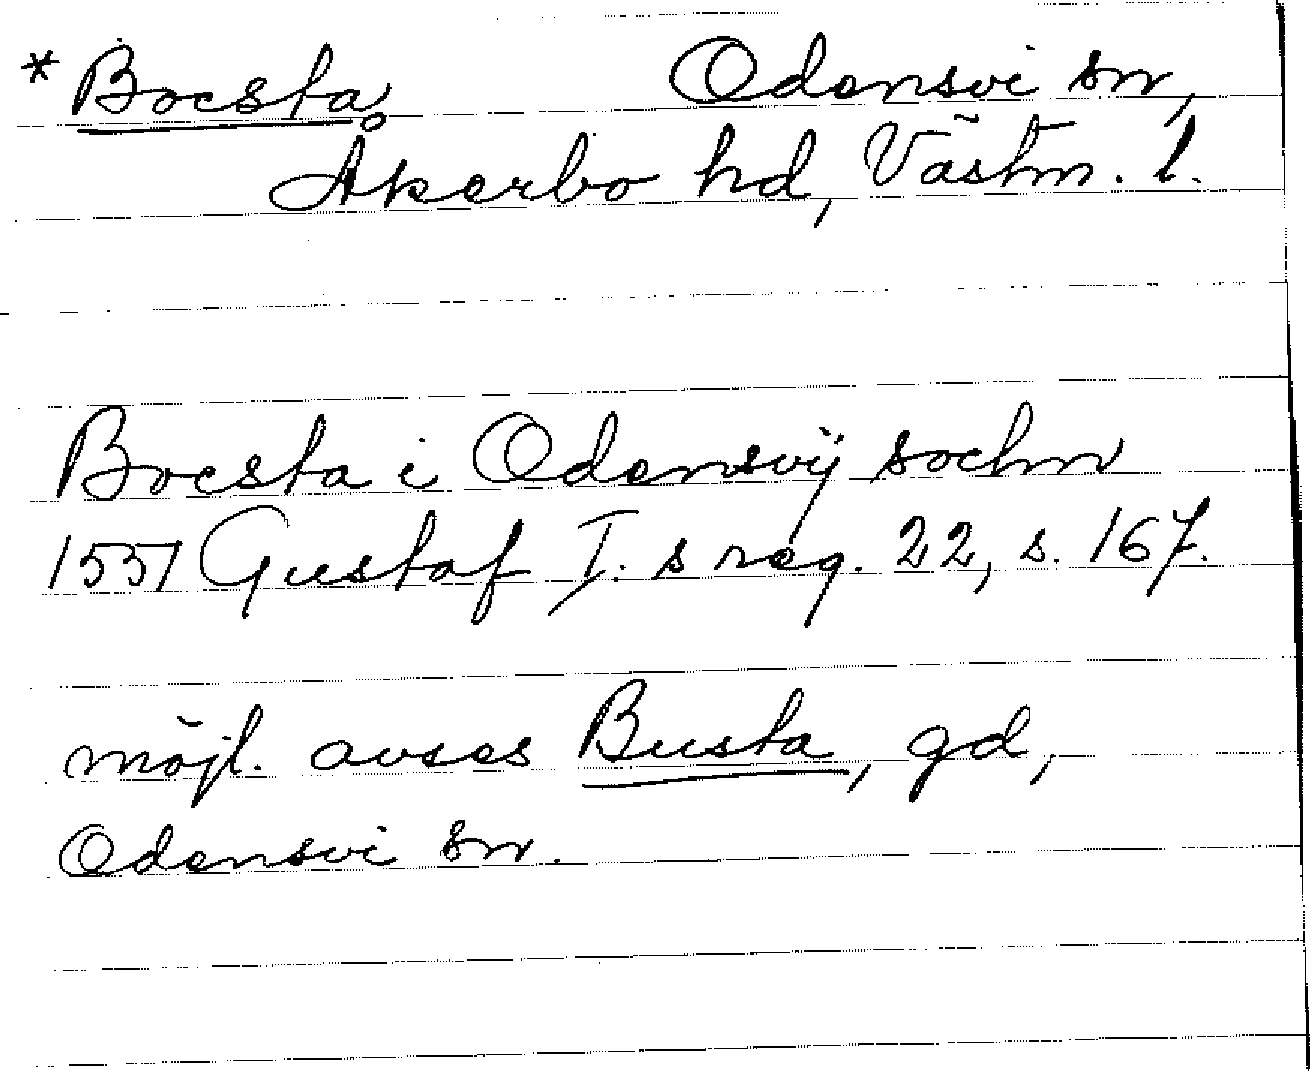 * Bocsta Odensvi sn,
Åkerbo hd, Västm. l.
Bocsta i Odensvij sochn
1551 Gustaf I:s reg. 22, s. 167.
möjl. avses Busta, gd,
Odensvi sn.